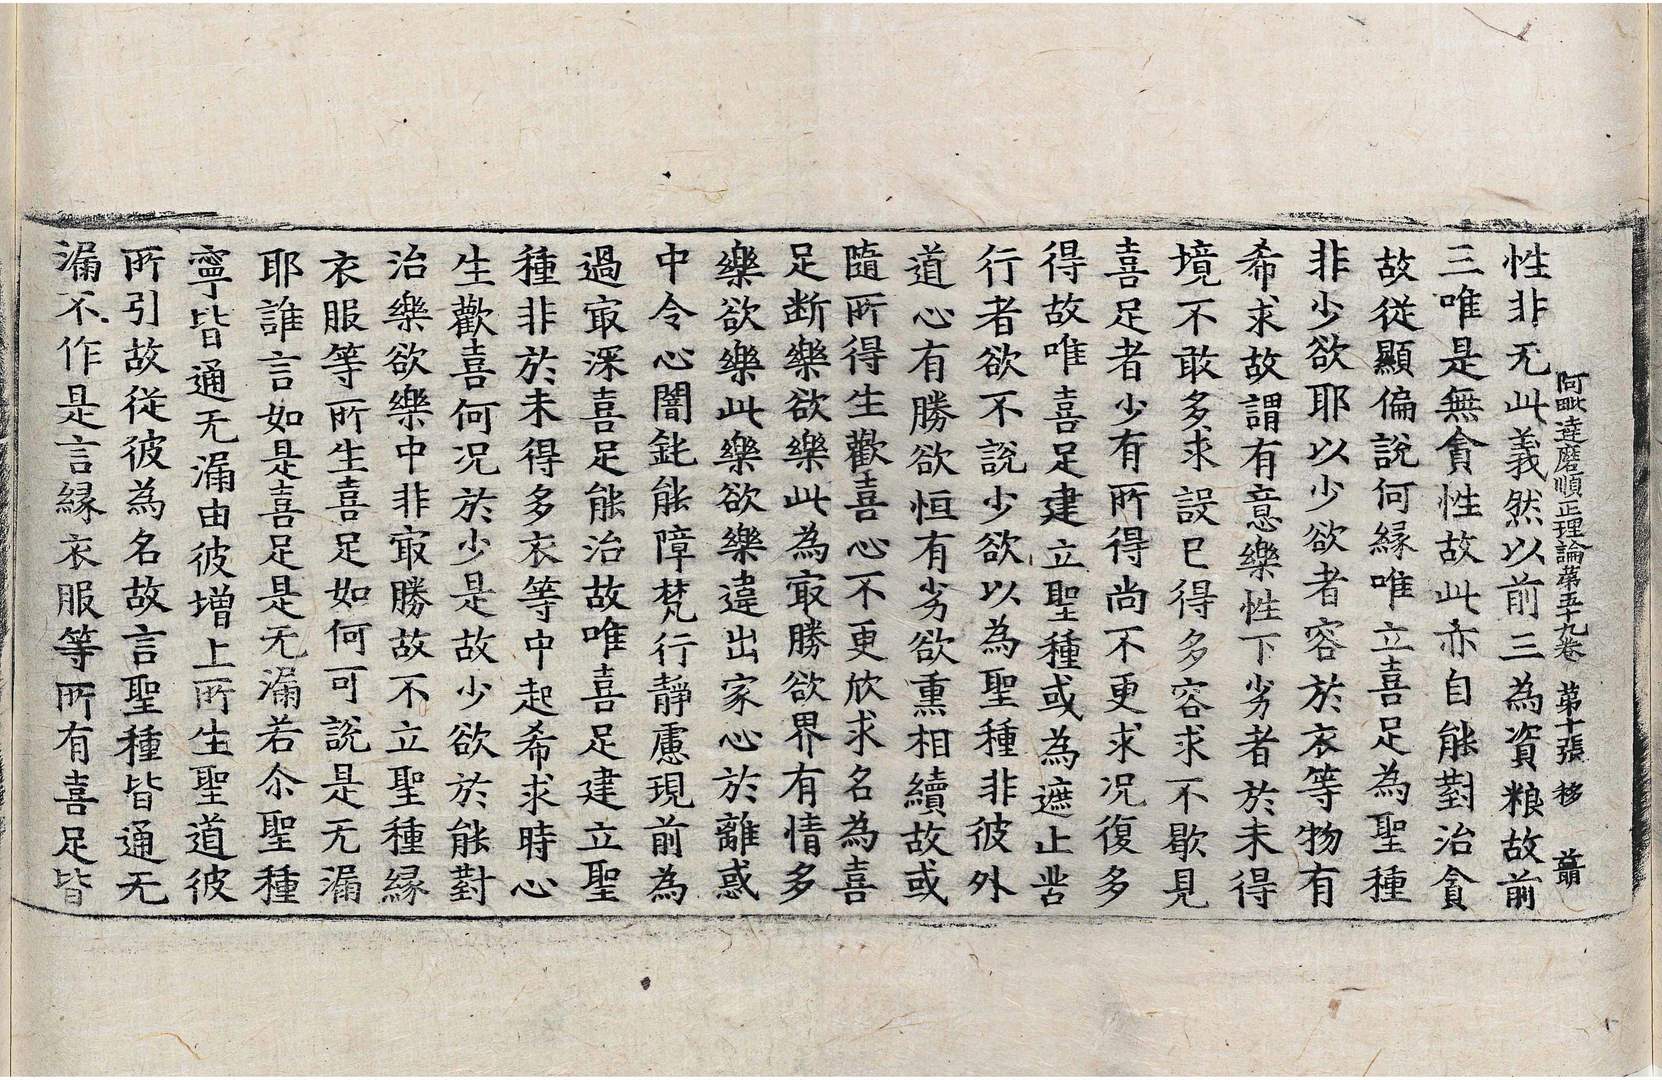 阿毗達磨順正理論第五十九卷 第十張 移
性非无此義然以前三為資粮故前
三唯是無貪性故此亦自能對治貪
故從顯偏說何緣唯立喜足為聖種
非少欲耶以少欲者容於衣等物有
希求故謂有意樂性下劣者於未得
境不敢多求設已得多容求不歇見
喜足者少有所得尚不更求况復多
得故唯喜足建立聖種或為遮止苦
行者欲不說少欲以為聖種非彼外
道心有勝欲恒有劣欲熏相續故或
隨所得生歡喜心不更欣求名為喜
足断樂欲樂此為冣勝欲界有情多
樂欲樂此樂欲樂違出家心於離惑
中令心闇鈍能障梵行靜慮現前為
過冣深喜足能治故唯喜足建立聖
種非於未得多衣等中起希求時心
生歡喜何况於少是故少欲於能對
治樂欲樂中非冣勝故不立聖種緣
衣服等所生喜足如何可說是无漏
耶誰言如是喜足是无漏若尒聖種
寧皆通无漏由彼增上所生聖道彼
所引故従彼為名故言聖種皆通无
漏不作是言緣衣服等所有喜足皆